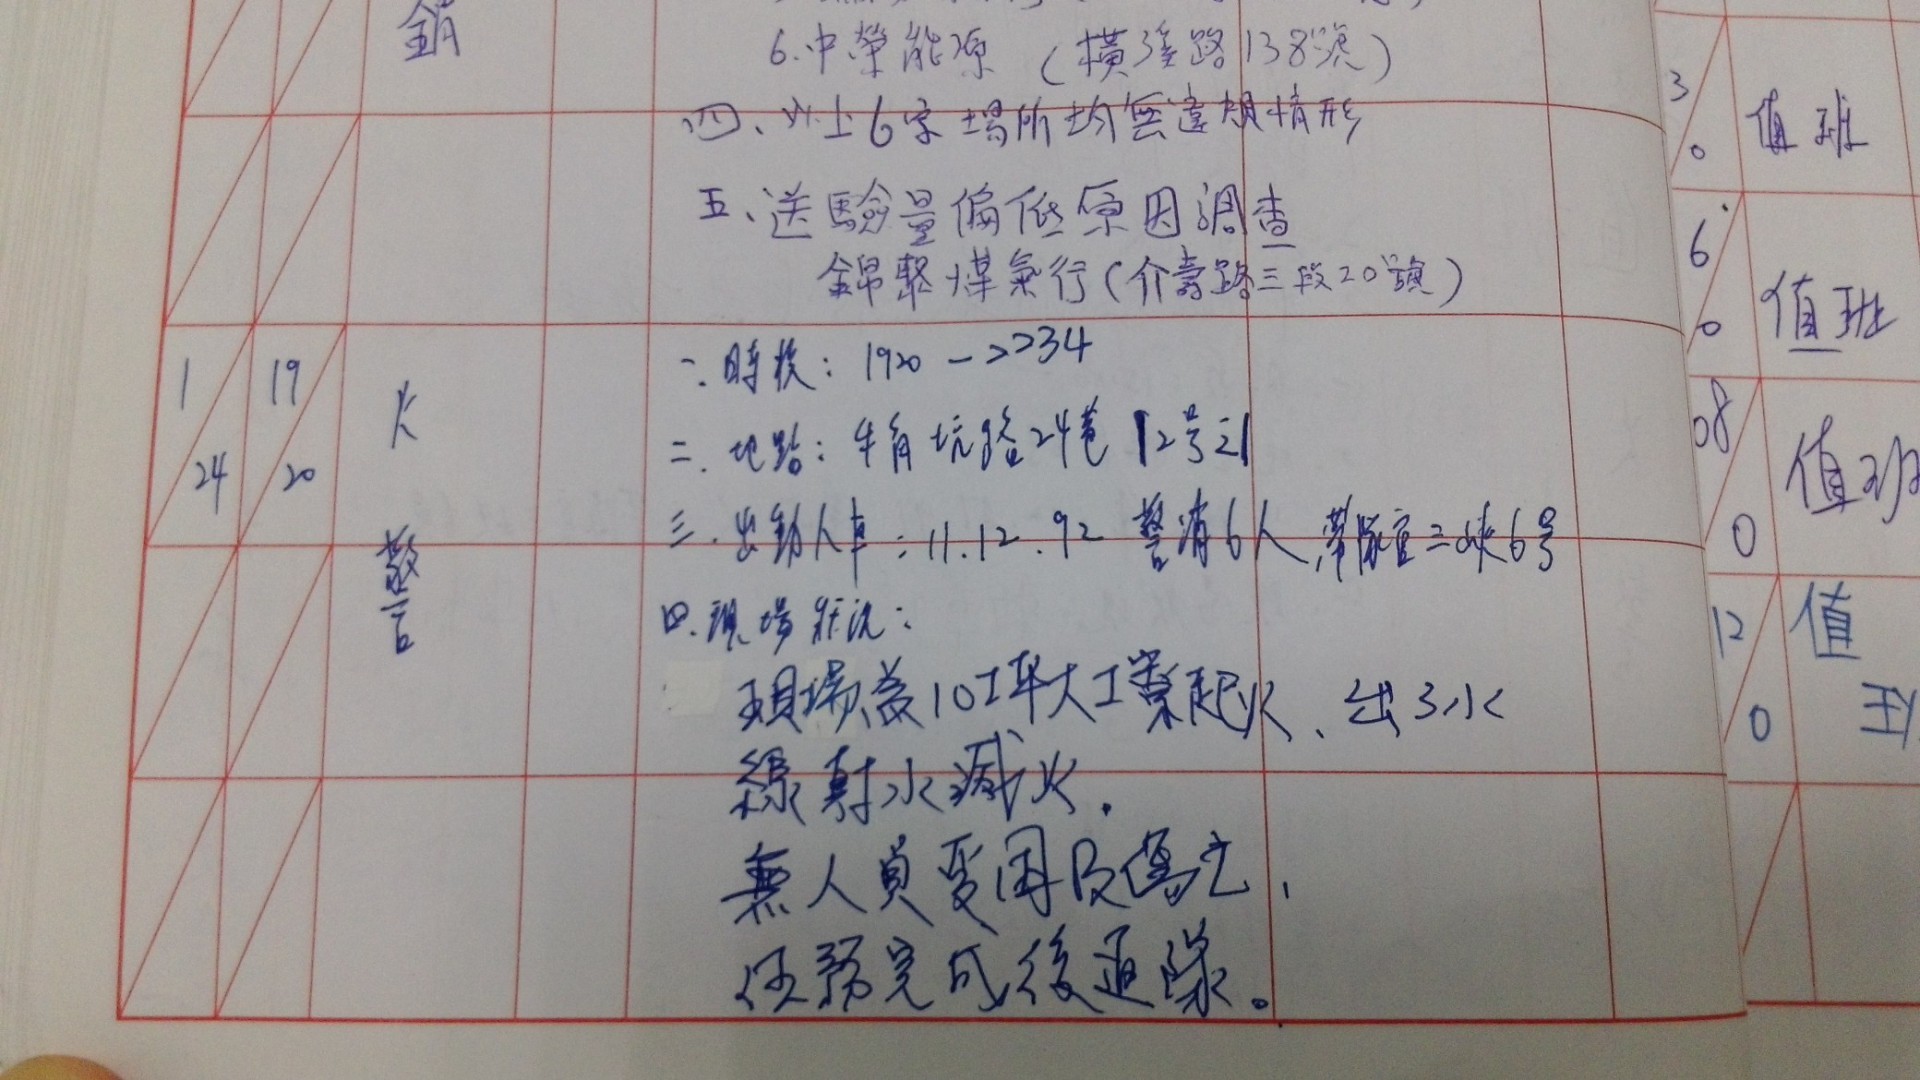 銷
6.中榮能源 (橫溪路138號)
四、以上6家場所均無違規情形
五、送驗量偏低原因調查
錦聚煤氣行(介壽路三段20號)
1
24
19
20
火
警
一.時段：1920－2234
二.地點：牛角坑路24巷12号之1
三.出動人車：11.12.92 警消6人,帶隊官三峽6号
四.現場狀況：
現場為 起火、出3水
線射水滅火.
無人員受困及傷亡,
任務完成後返隊。
3
0
值班
6
0
值班
08
0
值班
12
0
值
班